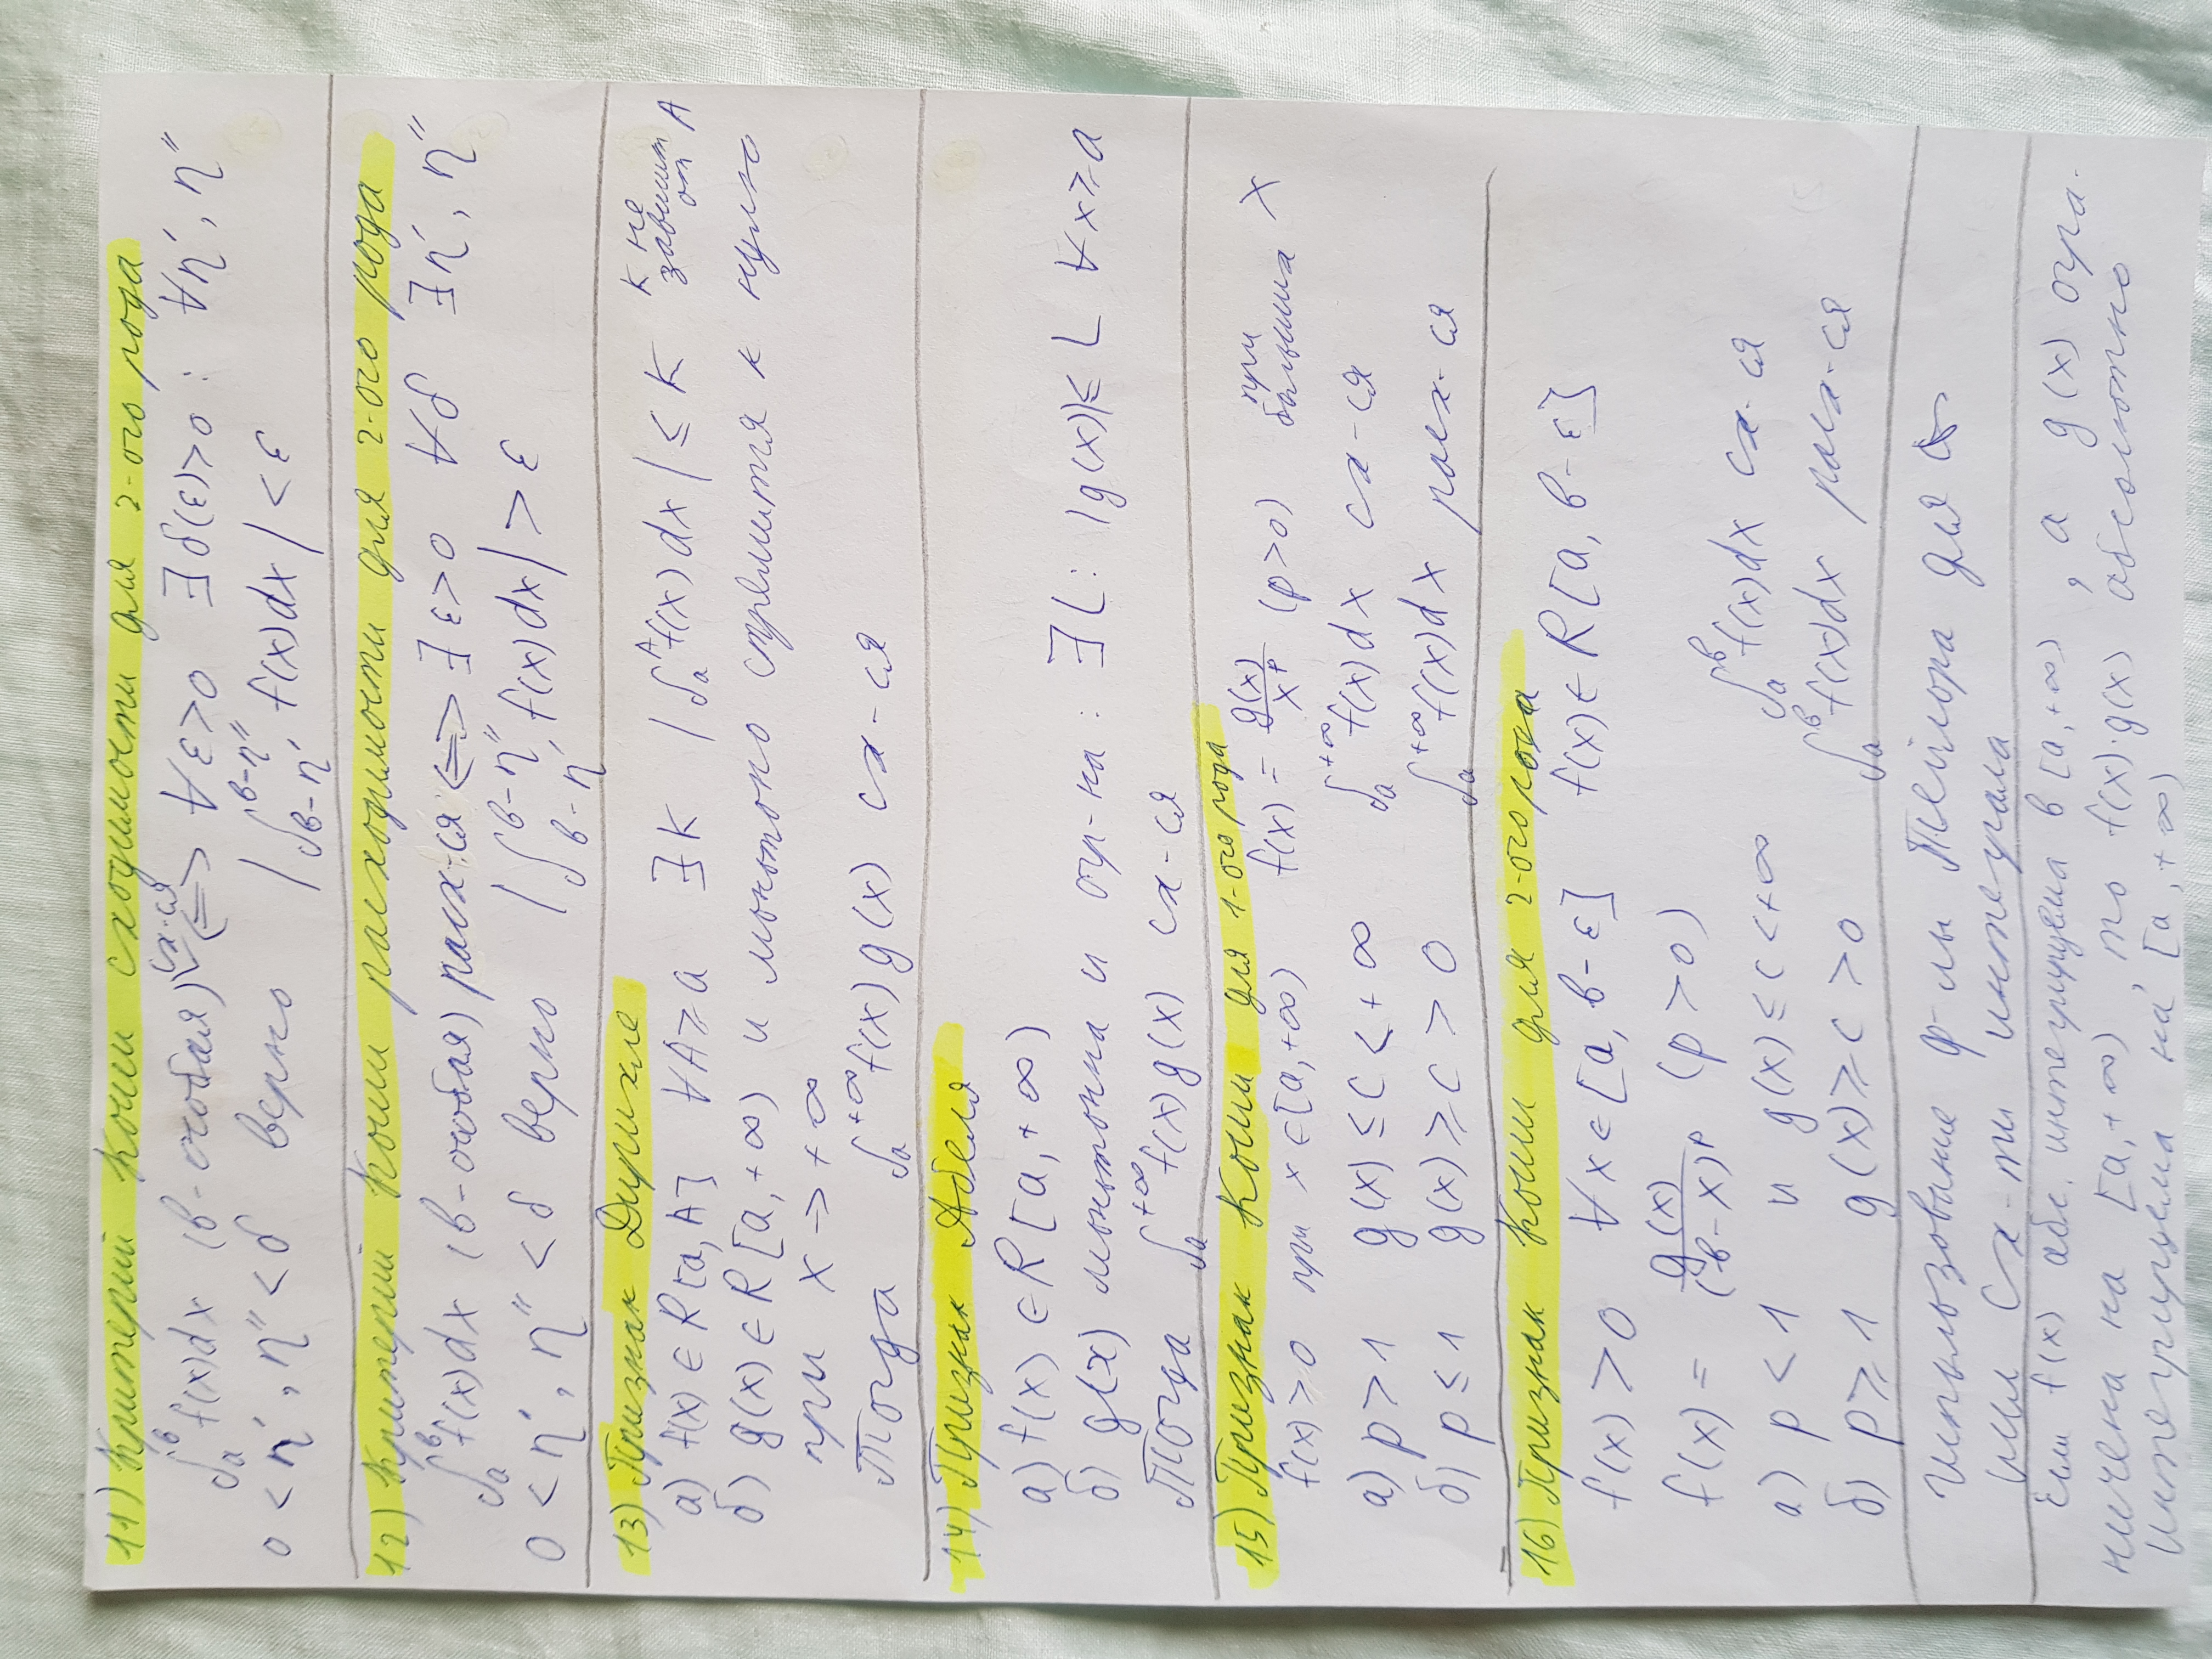 11) Критерий Коши сходимости для 2-ого рода
∫ₐᵇ f(x)dx (b-особая) сх-ся <=> ∀ε>0 ∃δ(ε)>0 : ∀η', η''
0 < η', η'' < δ верно |∫_{b-η'}^{b-η''} f(x)dx| < ε
12) Критерий Коши расходимости для 2-ого рода
∫ₐᵇ f(x)dx (b-особая) расх-ся <=> ∃ε>0 ∀δ ∃η', η''
0 < η', η'' < δ верно |∫_{b-η'}^{b-η''} f(x)dx| > ε
13) Признак Дирихле
а) f(x) ∈ R[a, A] ∀A≥a ∃K |∫ₐᴬ f(x)dx| ≤ K K не зависит от A
б) g(x) ∈ R[a, +∞) и монотонно стремится к нулю
при x -> +∞
Тогда ∫ₐ^{+∞} f(x)g(x) сх-ся
14) Признак Абеля
а) f(x) ∈ R[a, +∞)
б) g(x) монотонна и огр-на : ∃L : |g(x)| ≤ L ∀x≥a
Тогда ∫ₐ^{+∞} f(x)g(x) сх-ся
15) Признак Коши для 1-ого рода
f(x) ≥ 0 при x ∈ [a, +∞) f(x) = g(x)/xᵖ (p>0) при больших x
а) p > 1 g(x) ≤ c < +∞ ∫ₐ^{+∞} f(x)dx сх-ся
б) p ≤ 1 g(x) ≥ c > 0 ∫ₐ^{+∞} f(x)dx расх-ся
16) Признак Коши для 2-ого рода
f(x) > 0 ∀x ∈ [a, b-ε] f(x) ∈ R[a, b-ε]
f(x) = g(x)/(b-x)ᵖ (p > 0)
а) p < 1 и g(x) ≤ c < +∞ ∫ₐᵇ f(x)dx сх-ся
б) p ≥ 1 g(x) ≥ c > 0 ∫ₐᵇ f(x)dx расх-ся
Использование ф-лы Тейлора для
сх-ти интеграла
Если f(x) абс. интегрируема в [a, +∞) , а g(x) огра-
ничена на [a, +∞) то f(x)·g(x) абсолютно
интегрируема на [a, +∞)